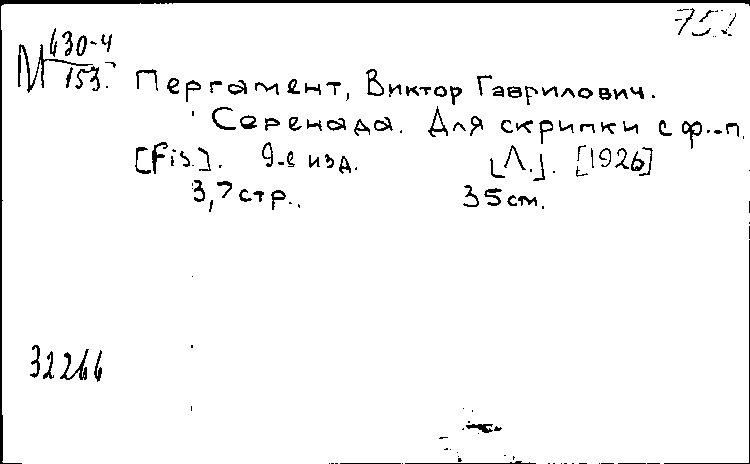 752
М 430-4
153.
Пергамент, Виктор Гаврилович.
Серенада. Для скрипки с ф.-п.
[Fis.]. 9-е изд. [Л.]. [1926]
3,7 стр.. 35 см.
32266